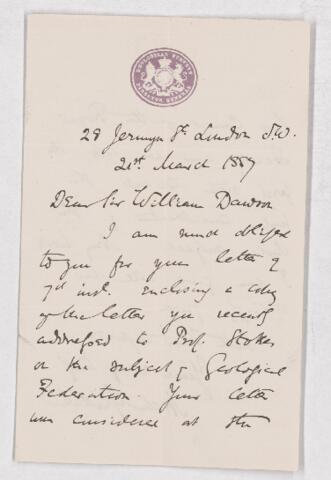 28 Jermyn St London S.W.
21st March 1887
Dear Sir William Dawson
I am much obliged
to you for your letter of
7th inst. enclosing a copy
of the letter you recently
addressed to Prof. Stokes
on the subject of Geological
Federation. Your letter
was considered at the